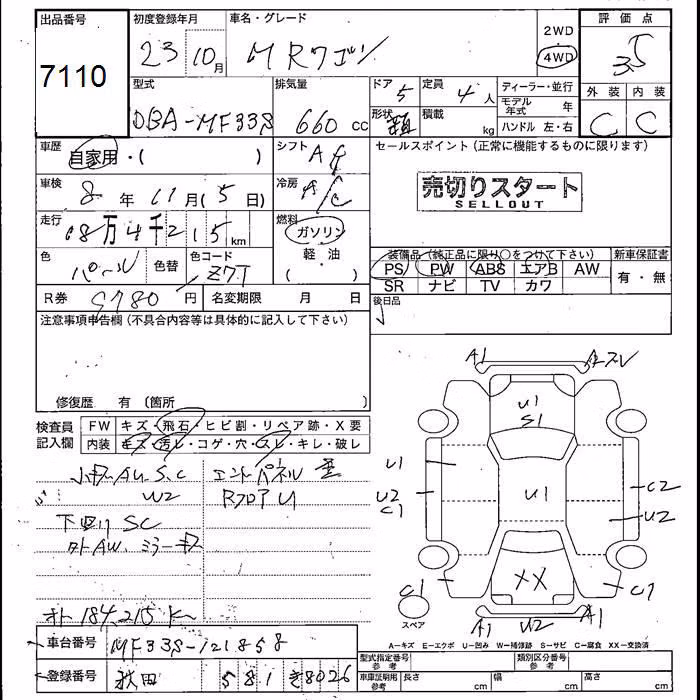 出品番号 初度登録年月 車名・グレード 2WD 評価点
7110 23 10月 MRワゴン 4WD 3.5
型式 排気量 ドア 5 定員 4人 ディーラー・並行 外装 内装
DBA-MF33S 660cc 形状 積載 kg モデル年式 年 C C
ハンドル 左・右
車歴 自家用・( ) シフト AT セールスポイント(正常に機能するものに限ります)
車検 8年11月(5日) 冷房 A/C 売切りスタート
SELLOUT
走行 18万4千215km 燃料 ガソリン
軽・油
色 パール 色替 色コード Z7T ( ) 装備品(純正品に限り○をつけて下さい) 新車保証書
PS PW ABS エアB AW 有・無
SR ナビ TV カワ
R券 9780円 名変期限 月 日 後日品
注意事項申告欄(不具合内容等は具体的に記入して下さい)
修復歴 有(箇所 )
A1
検査員 FW キズ・飛石・ヒビ割・リペア跡・X要
記入欄 内装 キズ・汚レ・コゲ・穴・スレ・キレ・破レ
U1
S1
小キズAU.S.C エンドパネル
W2 RフロアU
U1
U2
C1
U1
C2
U2
下回りSC
外AW、ミラーキズ
XX
C1
C1
スペア
A1 U2 A1
184,215
A=キズ E=エクボ U=凹み W=補修跡 S=サビ C=腐食 XX=交換済
車台番号 MF33S-121858
型式指定番号 参考 類別区分番号 参考
登録番号 秋田 581 き8026
車庫証明用 参考 長さ cm 幅 cm 高さ cm